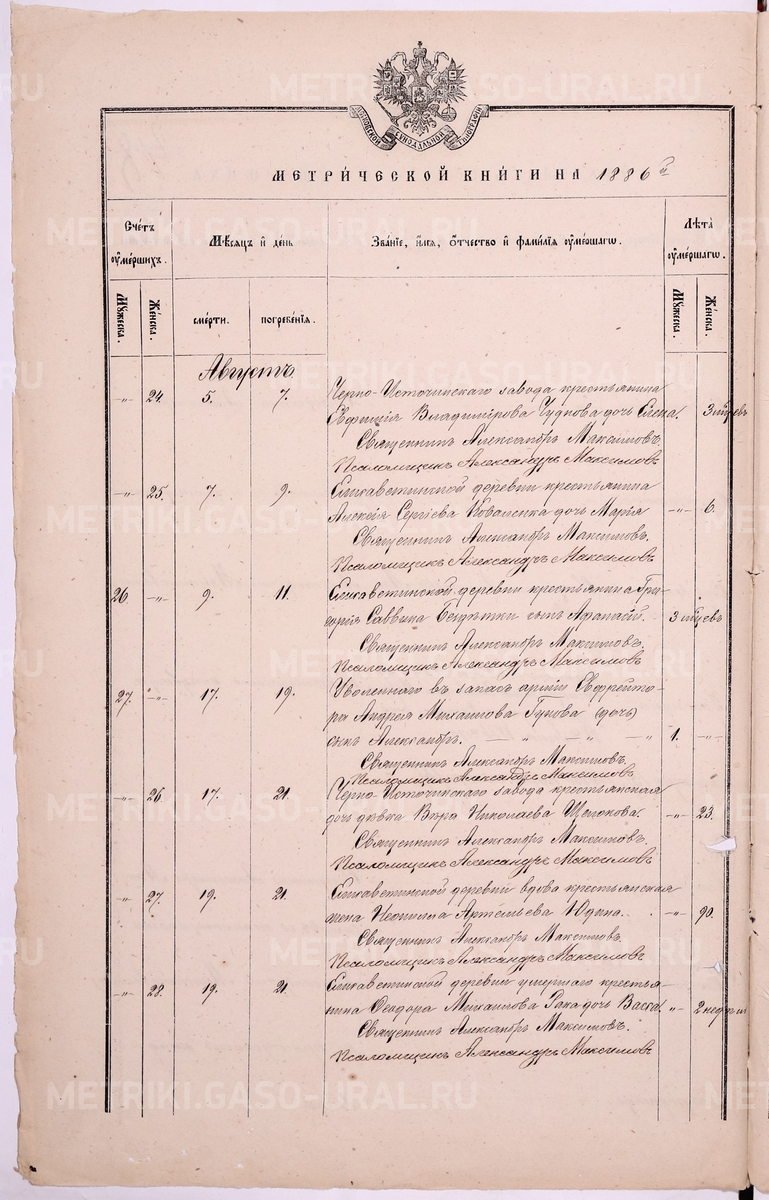 МОСКОВСКОЙ СѴНОДАЛЬНОЙ ТИПОГРАФІИ
МЕТРИ́ЧЕСКОЙ КНИ́ГИ НА 1886 й
Сче́тъ ᲂу҆ме́ршихъ.
Мѣ́сяцъ и҆ де́нь
Зва́нїе, и҆́мѧ, ѻ҆́тчество и҆ фами́лїѧ ᲂу҆ме́ршагѡ.
Лѣ́та ᲂу҆ме́ршагѡ.
Мꙋ́жеска. Же́нска. сме́рти. погребе́нїѧ. Мꙋ́жеска. Же́нска.
Августъ
-„- 24. 5. 7. Черно-Источинскаго завода крестьянина
Владимірова Чуднова дочь Елена. 3 мцевъ
Священникъ Александръ Максимовъ.
Псаломщикъ Александръ Максимовъ
-„- 25. 7. 9. Елисаветинской деревни крестьянина
Алексія Сергіева Коваленка дочь Марія -„- 6.
Священникъ Александръ Максимовъ.
Псаломщикъ Александръ Максимовъ
26. -„- 9. 11. Елисаветинской деревни крестьянина Гри-
горія Саввина сынъ Афанасій. 3 мцевъ
Священникъ Александръ Максимовъ.
Псаломщикъ Александръ Максимовъ
27. -„- 17. 19. Уволеннаго въ запасъ арміи Ефрейто-
ра Андрея Михаилова (дочь)
сынъ Александръ. — „ — „ — „ 1. -„-
Священникъ Александръ Максимовъ.
Псаломщикъ Александръ Максимовъ
-„- 26. 17. 21. Черно-Источинскаго завода крестьянская
дочь дѣвка Вѣра Николаева Щелокова. -„- 23.
Священникъ Александръ Максимовъ.
Псаломщикъ Александръ Максимовъ
-„- 27. 19. 21. Елисаветинской деревни вдова крестьянская
жена Неонилла Артемьева Юдина. -„- 90.
Священникъ Александръ Максимовъ.
Псаломщикъ Александръ Максимовъ
-„- 28. 19. 21. Елисаветинской деревни умершаго крестья-
нина Ѳеодора Михаилова дочь Васса. -„- 2 недѣли
Священникъ Александръ Максимовъ.
Псаломщикъ Александръ Максимовъ
METRIKI.GASO-URAL.RU